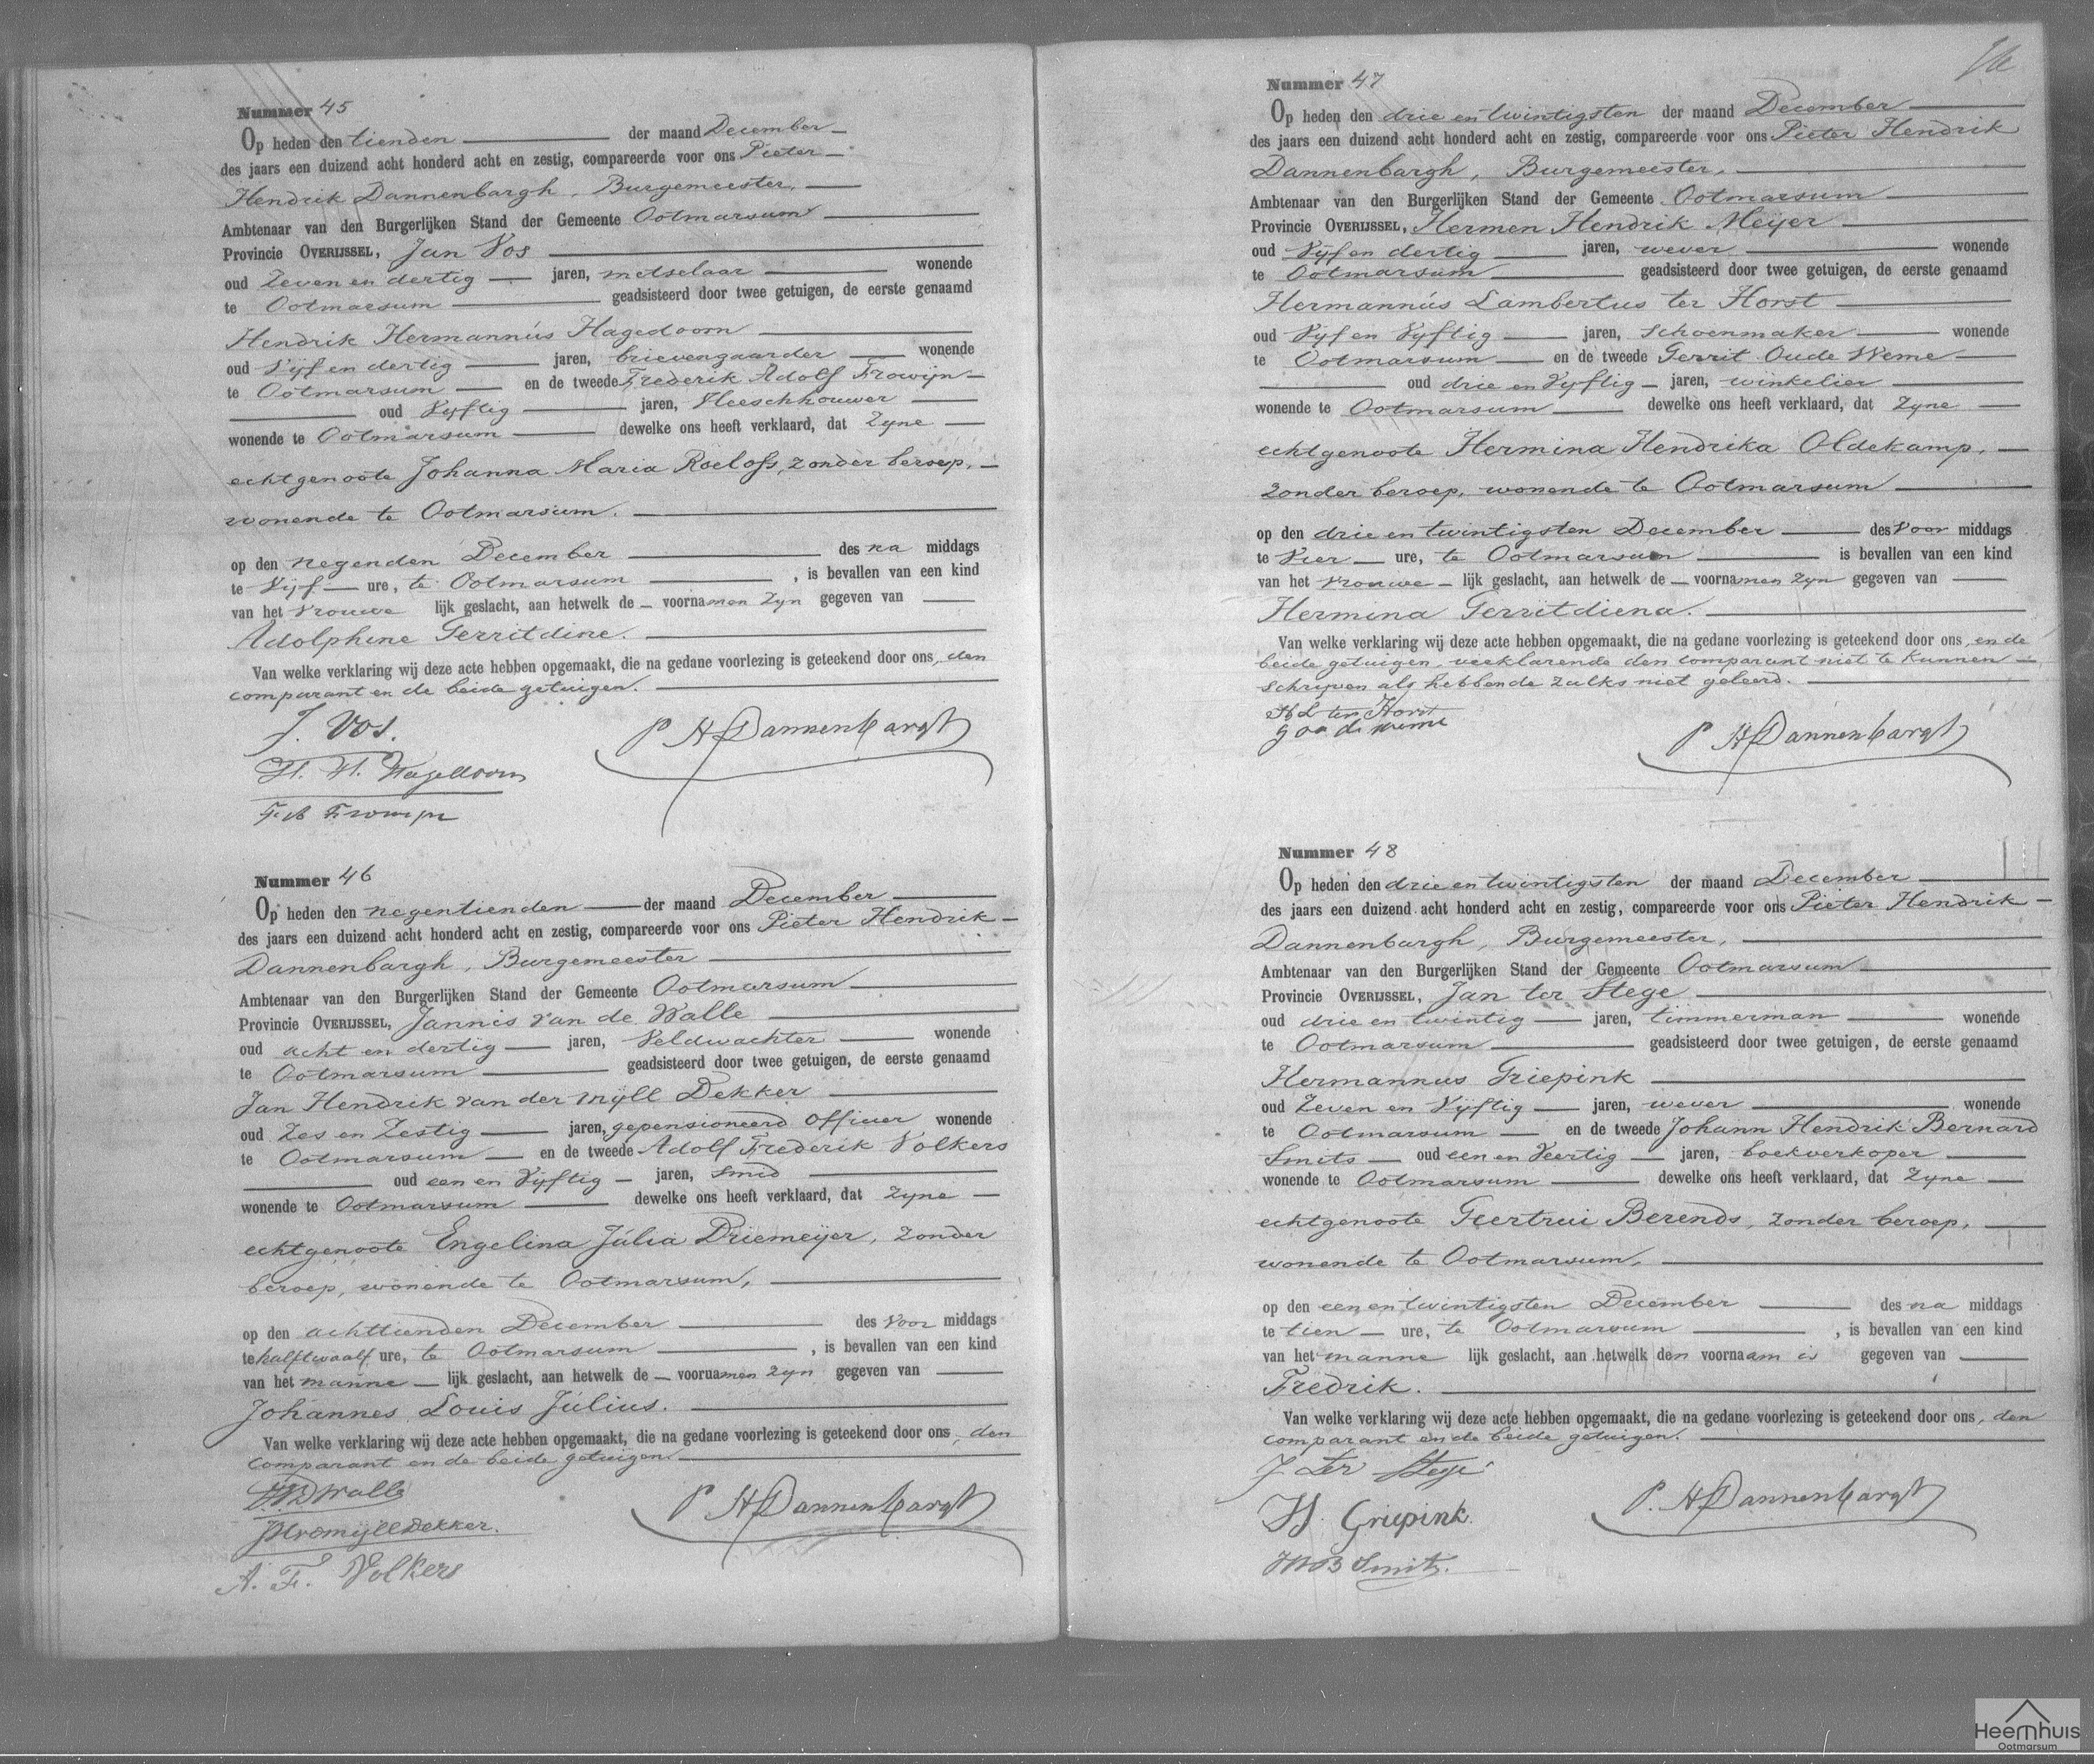 Nummer 45
Op heden den tienden der maand December
des jaars een duizend acht honderd acht en zestig, compareerde voor ons Pieter
Hendrik Dannenbargh, Burgemeester,
Ambtenaar van den Burgerlijken Stand der Gemeente Ootmarsum
Provincie OVERIJSSEL, Jan Vos
oud Zeven en dertig jaren, metselaar wonende
te Ootmarsum geadsisteerd door twee getuigen, de eerste genaamd
Hendrik Hermannús Hagedoorn
oud Vijf en dertig jaren, brievengaarder wonende
te Ootmarsum en de tweede Frederik Adolf Frowijn
oud Vyftig jaren, Vleeschhouwer
wonende te Ootmarsum dewelke ons heeft verklaard, dat Zyne
echtgenoote Johanna Maria Roelofs, zonder beroep,
wonende te Ootmarsum.
op den negenden December des na middags
te Vijf ure, te Ootmarsum , is bevallen van een kind
van het Vrouwe lijk geslacht, aan hetwelk de voornamen Zyn gegeven van
Adolphine Gerritdine.
Van welke verklaring wij deze acte hebben opgemaakt, die na gedane voorlezing is geteekend door ons, den
comparant en de beide getuigen.
J. Vos.
P H Dannenbargh
H. H. Hagedoorn
Nummer 46
Op heden den negentienden der maand December
des jaars een duizend acht honderd acht en zestig, compareerde voor ons Pieter Hendrik
Dannenbargh, Burgemeester
Ambtenaar van den Burgerlijken Stand der Gemeente Ootmarsum
Provincie OVERIJSSEL, Jannis van de Walle
oud acht en dertig jaren, Veldwachter wonende
te Ootmarsum geadsisteerd door twee getuigen, de eerste genaamd
Jan Hendrik van der Mÿll Dekker
oud Zes en Zestig jaren, gepensioneerd Officier wonende
te Ootmarsum en de tweede Adolf Frederik Volkers
oud een en Vijftig jaren, Smid
wonende te Ootmarsum dewelke ons heeft verklaard, dat Zyne
echtgenoote Engelina Júlia Driemeijer, zonder
beroep, wonende te Ootmarsum,
op den achttienden December des Voor middags
te halftwaalf ure, te Ootmarsum , is bevallen van een kind
van het manne lijk geslacht, aan hetwelk de voornamen zyn gegeven van
Johannes Louis Július.
Van welke verklaring wij deze acte hebben opgemaakt, die na gedane voorlezing is geteekend door ons, den
comparant en de beide getuigen
P H Dannenbargh
A. F. Volkers
Nummer 47
Op heden den drie en twintigsten der maand December
des jaars een duizend acht honderd acht en zestig, compareerde voor ons Pieter Hendrik
Dannenbargh, Burgemeester,
Ambtenaar van den Burgerlijken Stand der Gemeente Ootmarsum
Provincie OVERIJSSEL, Hermen Hendrik Meijer
oud Vijf en dertig jaren, wever wonende
te Ootmarsum geadsisteerd door twee getuigen, de eerste genaamd
Hermannús Lambertus ter Horst
oud Vijf en Vyftig jaren, Schoenmaker wonende
te Ootmarsum en de tweede Gerrit Oude Weme
oud drie en Vyftig jaren, winkelier
wonende te Ootmarsum dewelke ons heeft verklaard, dat Zyne
echtgenoote Hermina Hendrika Oldekamp,
zonder beroep, wonende te Ootmarsum
op den drie en twintigsten December des Voor middags
te Vier ure, te Ootmarsum is bevallen van een kind
van het Vrouwe lijk geslacht, aan hetwelk de voornamen zyn gegeven van
Hermina Gerritdiena.
Van welke verklaring wij deze acte hebben opgemaakt, die na gedane voorlezing is geteekend door ons, en de
beide getuigen, verklarende den comparant niet te kunnen
schrijven als hebbende zulks niet geleerd.
H L ter Horst
P H Dannenbargh
Nummer 48
Op heden den drie en twintigsten der maand December
des jaars een duizend acht honderd acht en zestig, compareerde voor ons Pieter Hendrik
Dannenbargh, Burgemeester,
Ambtenaar van den Burgerlijken Stand der Gemeente Ootmarsum
Provincie OVERIJSSEL, Jan ter Stege
oud drie en twintig jaren, timmerman wonende
te Ootmarsum geadsisteerd door twee getuigen, de eerste genaamd
Hermannus Griepink
oud Zeven en Vijftig jaren, wever wonende
te Ootmarsum en de tweede Johann Hendrik Bernard
Smits oud een en Veertig jaren, boekverkoper
wonende te Ootmarsum dewelke ons heeft verklaard, dat Zyne
echtgenoote Geertrui Berends, zonder beroep,
wonende te Ootmarsum,
op den een en twintigsten December des na middags
te tien ure, te Ootmarsum , is bevallen van een kind
van het manne lijk geslacht, aan hetwelk den voornaam is gegeven van
Fredrik.
Van welke verklaring wij deze acte hebben opgemaakt, die na gedane voorlezing is geteekend door ons, den
comparant en de beide getuigen.
J ter Stege
P. H Dannenbargh
H. Griepink.
JHB Smits.
Heemhuis
Ootmarsum